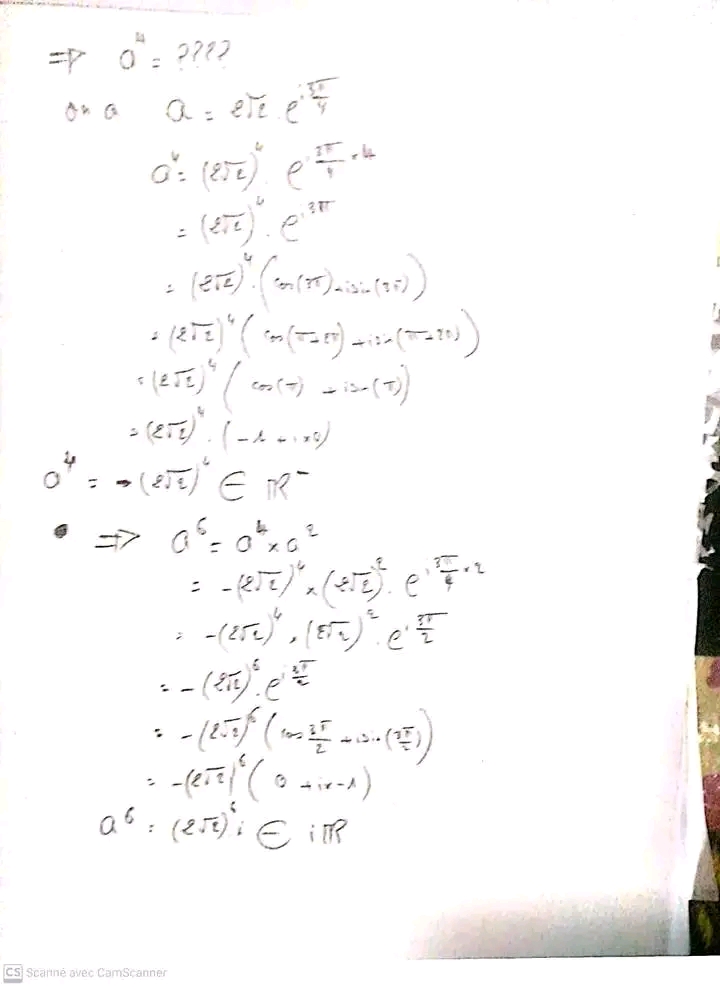 ⇒ a⁴ = ????
on a a = 2√2 . e^{i 3π/4}
a⁴ = (2√2)⁴ . e^{i 3π/4 × 4}
= (2√2)⁴ . e^{i 3π}
= (2√2)⁴ . (cos(3π) + i sin(3π))
= (2√2)⁴ (cos(π+2π) + i sin(π+2π))
= (2√2)⁴ (cos(π) + i sin(π))
= (2√2)⁴ . (-1 + i×0)
a⁴ = -(2√2)⁴ ∈ ℝ⁻
• ⇒ a⁶ = a⁴ × a²
= -(2√2)⁴ × (2√2)² . e^{i 3π/4 × 2}
= -(2√2)⁴ × (2√2)² . e^{i 3π/2}
= -(2√2)⁶ . e^{i 3π/2}
= -(2√2)⁶ (cos 3π/2 + i sin(3π/2))
= -(2√2)⁶ (0 + i×-1)
a⁶ = (2√2)⁶ i ∈ iℝ
CS Scanné avec CamScanner